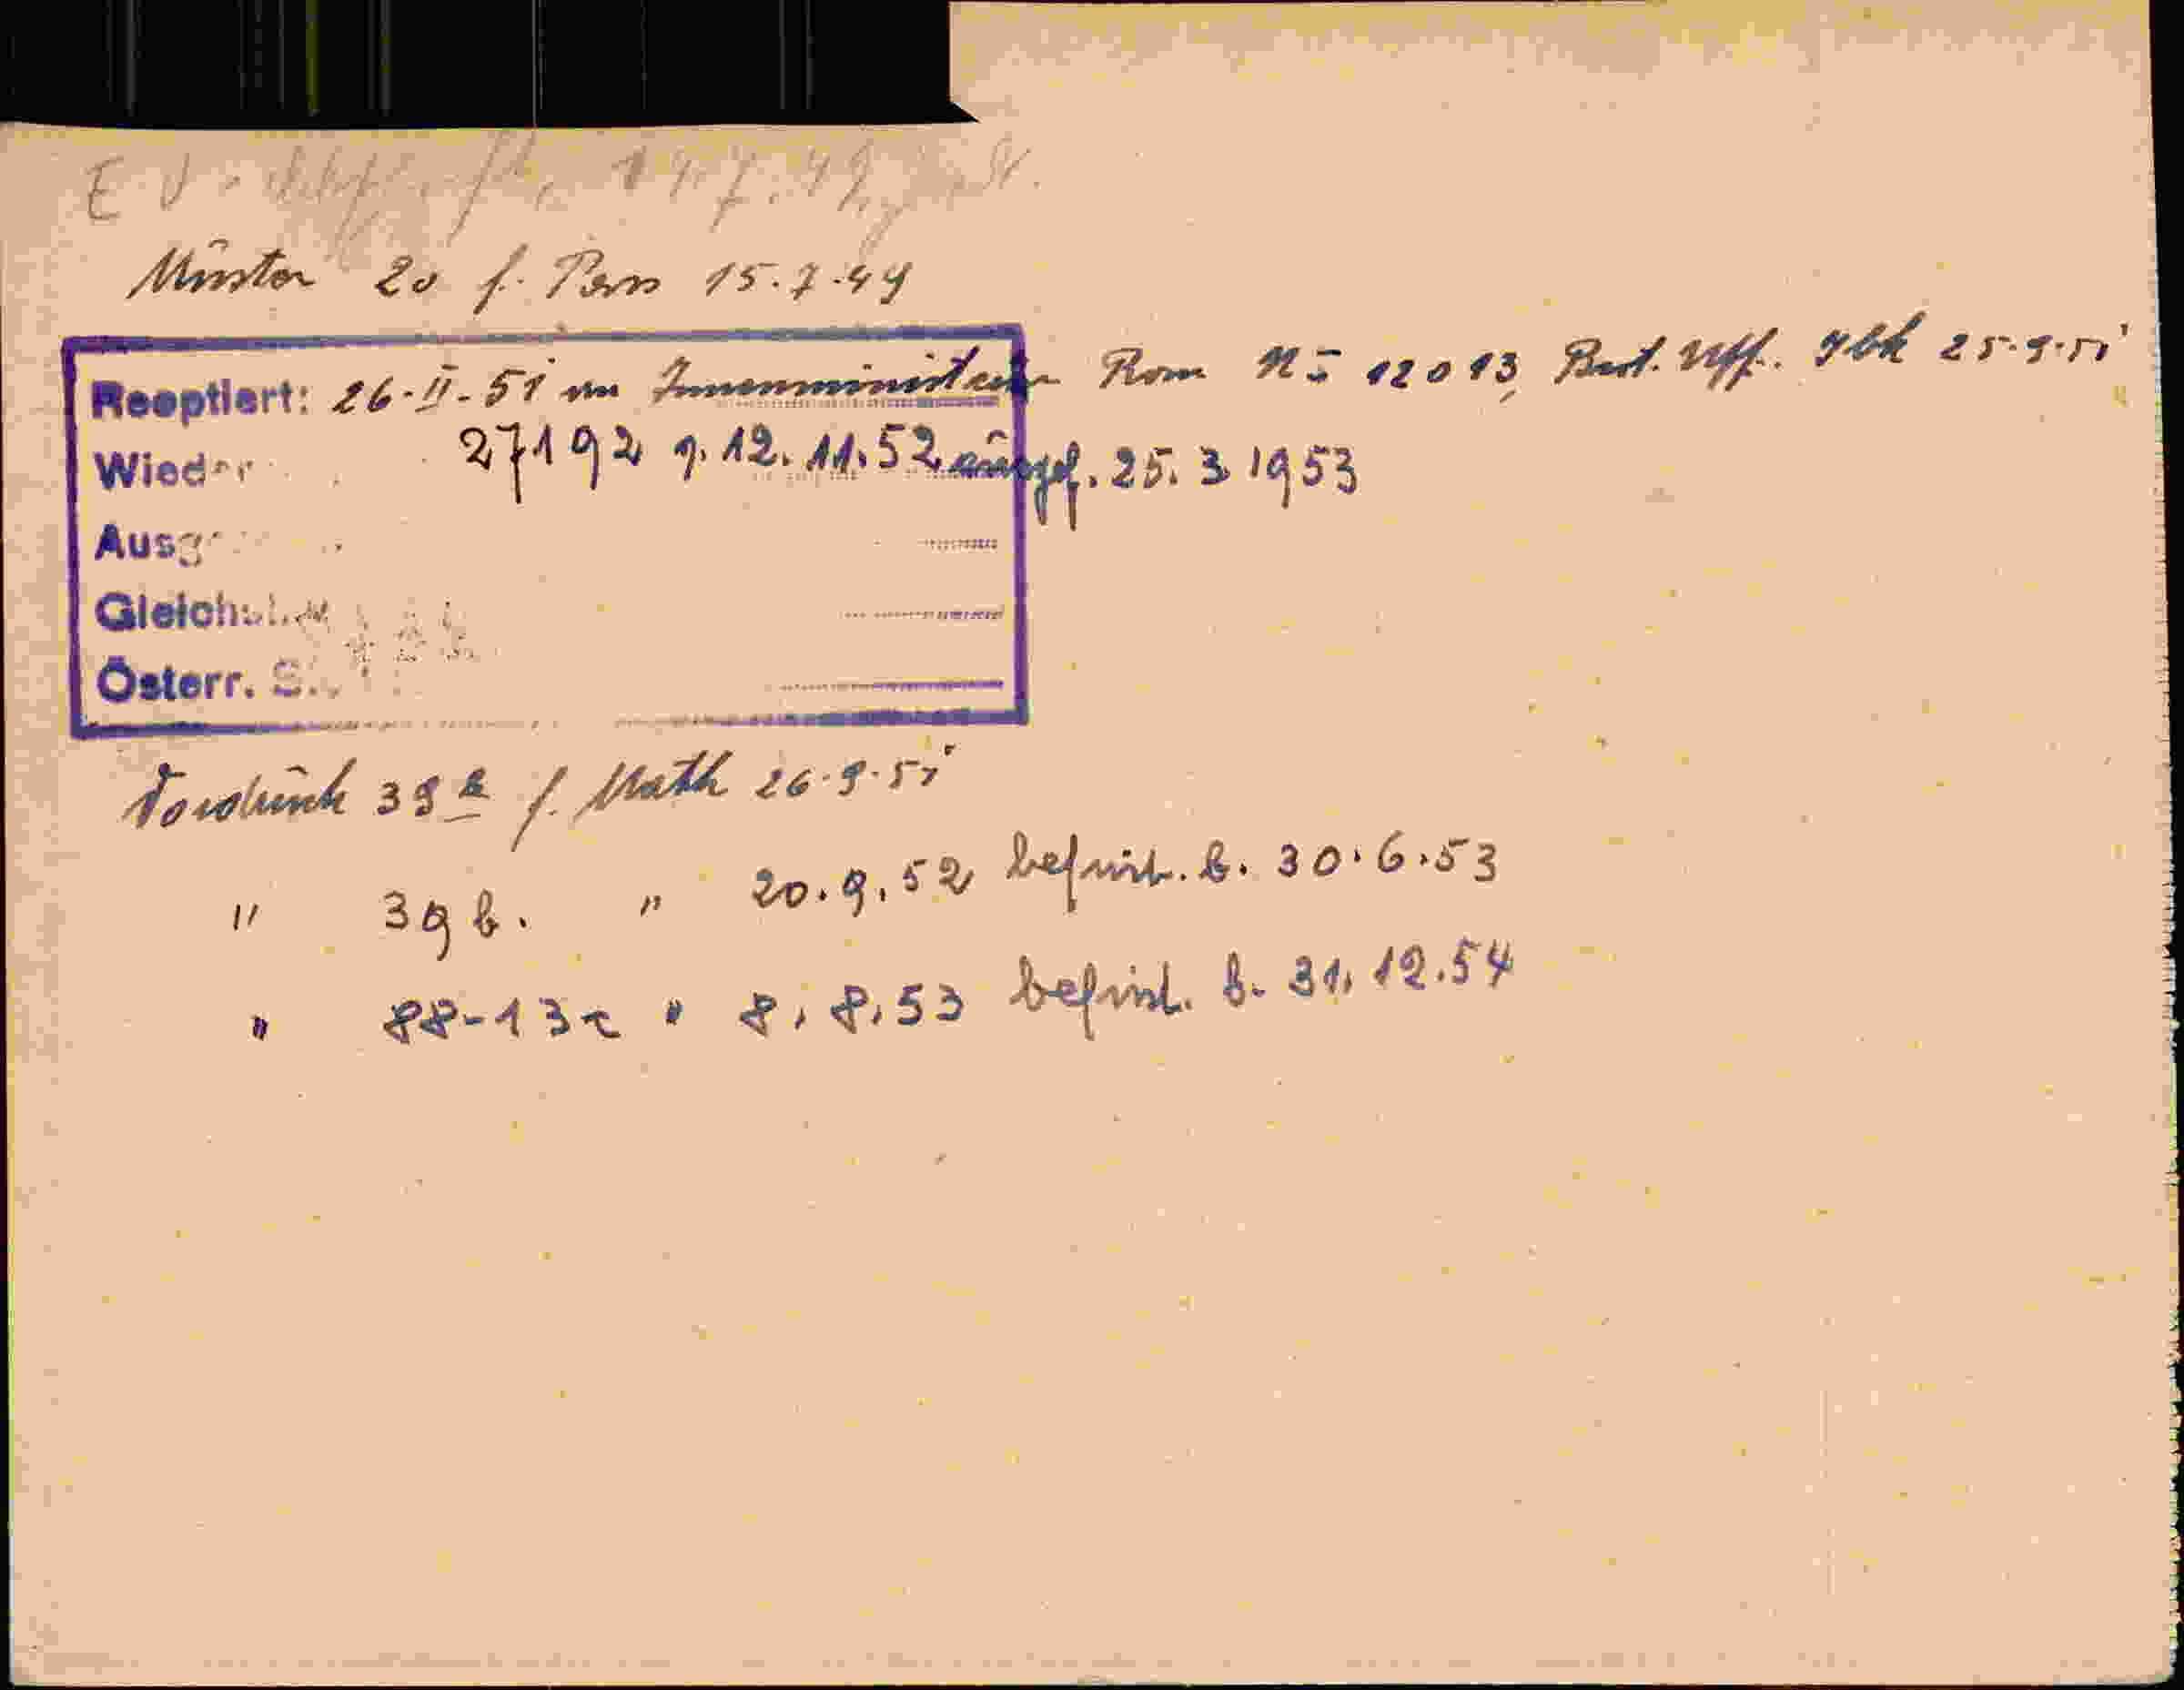 E V 19.7.49
Muster 20 f. Pers 15.7.49
Reoptiert: 26-II-51 im Innenministerium Rom No 12013, 25.9.51
Wieder 27192 v. 12.11.52 ausgef. 25.3.1953
Ausg
Gleichst
Österr. S
Vordruck 39 b f. Math 26.9.51
" 39 b. " 20.9.52 befrist. b. 30.6.53
" 88-13 r " 8.8.53 befrist. b. 31.12.54